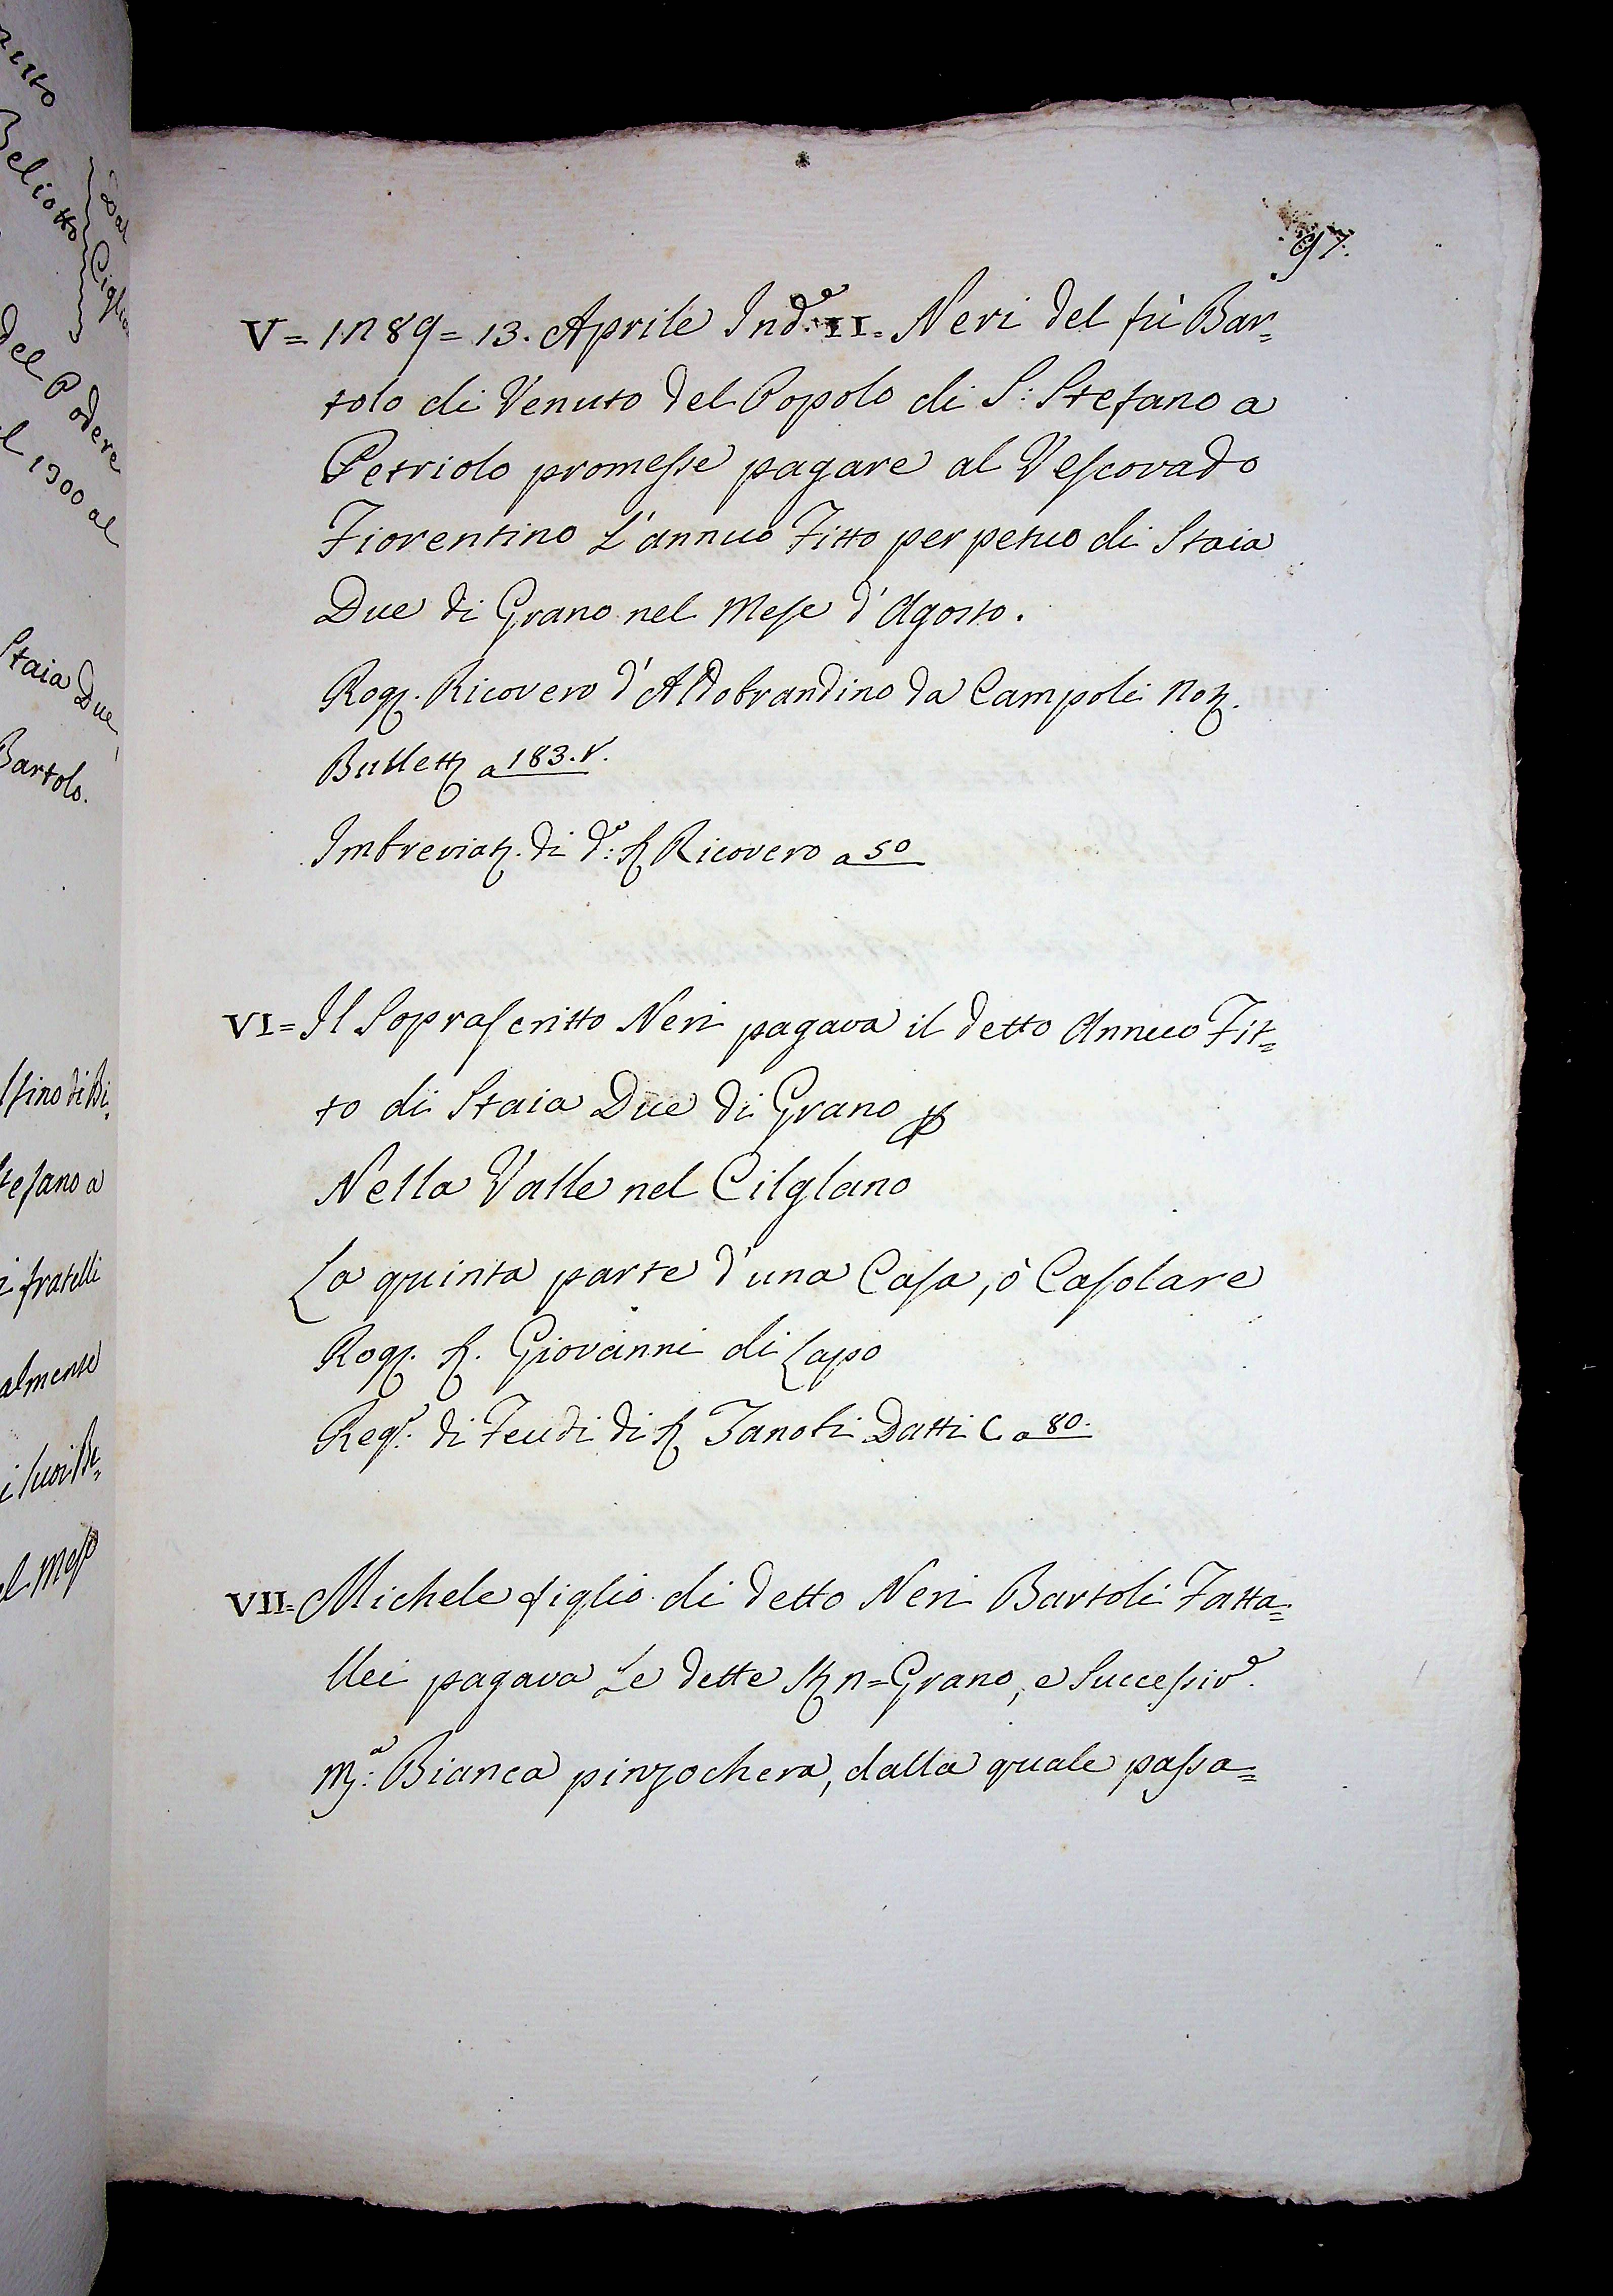 nuto
Beliotto
Dal
Ciglia
del Podere
l 1300 al
Staia Due
Bartolo.
sino di Bi=
tefano a
i fratelli
almente
i suoi Be=
el Mese
97.
V= 1289= 13. Aprile Ind.e II= Neri del fù Bar=
tolo di Venuto del Popolo di S: Stefano a
Petriolo promesse pagare al Vescovado
Fiorentino L'annuo Fitto perpetuo di Staia
Due di Grano nel Mese d'Agosto.
Rog. Ricovero d'Aldobrandino da Campoli Not.
Bullett a 183. v.
Imbreviat. di d.o: S. Ricovero a 50
VI= Il Soprascritto Neri pagava il detto Annuo Fit=
to di Staia Due di Grano p
Nella Valle nel Cilglano
La quinta parte d'una Casa, ò Casolare
Rog. S. Giovanni di Lapo
Reg.o: di Feudi di S. Zanobi Datti C a 80.
VII= Michele figlio di detto Neri Bartoli Fatta=
llei pagava Le dette St 2= Grano, e Successiv.e
M.a: Bianca pinzochera, dalla quale passa=